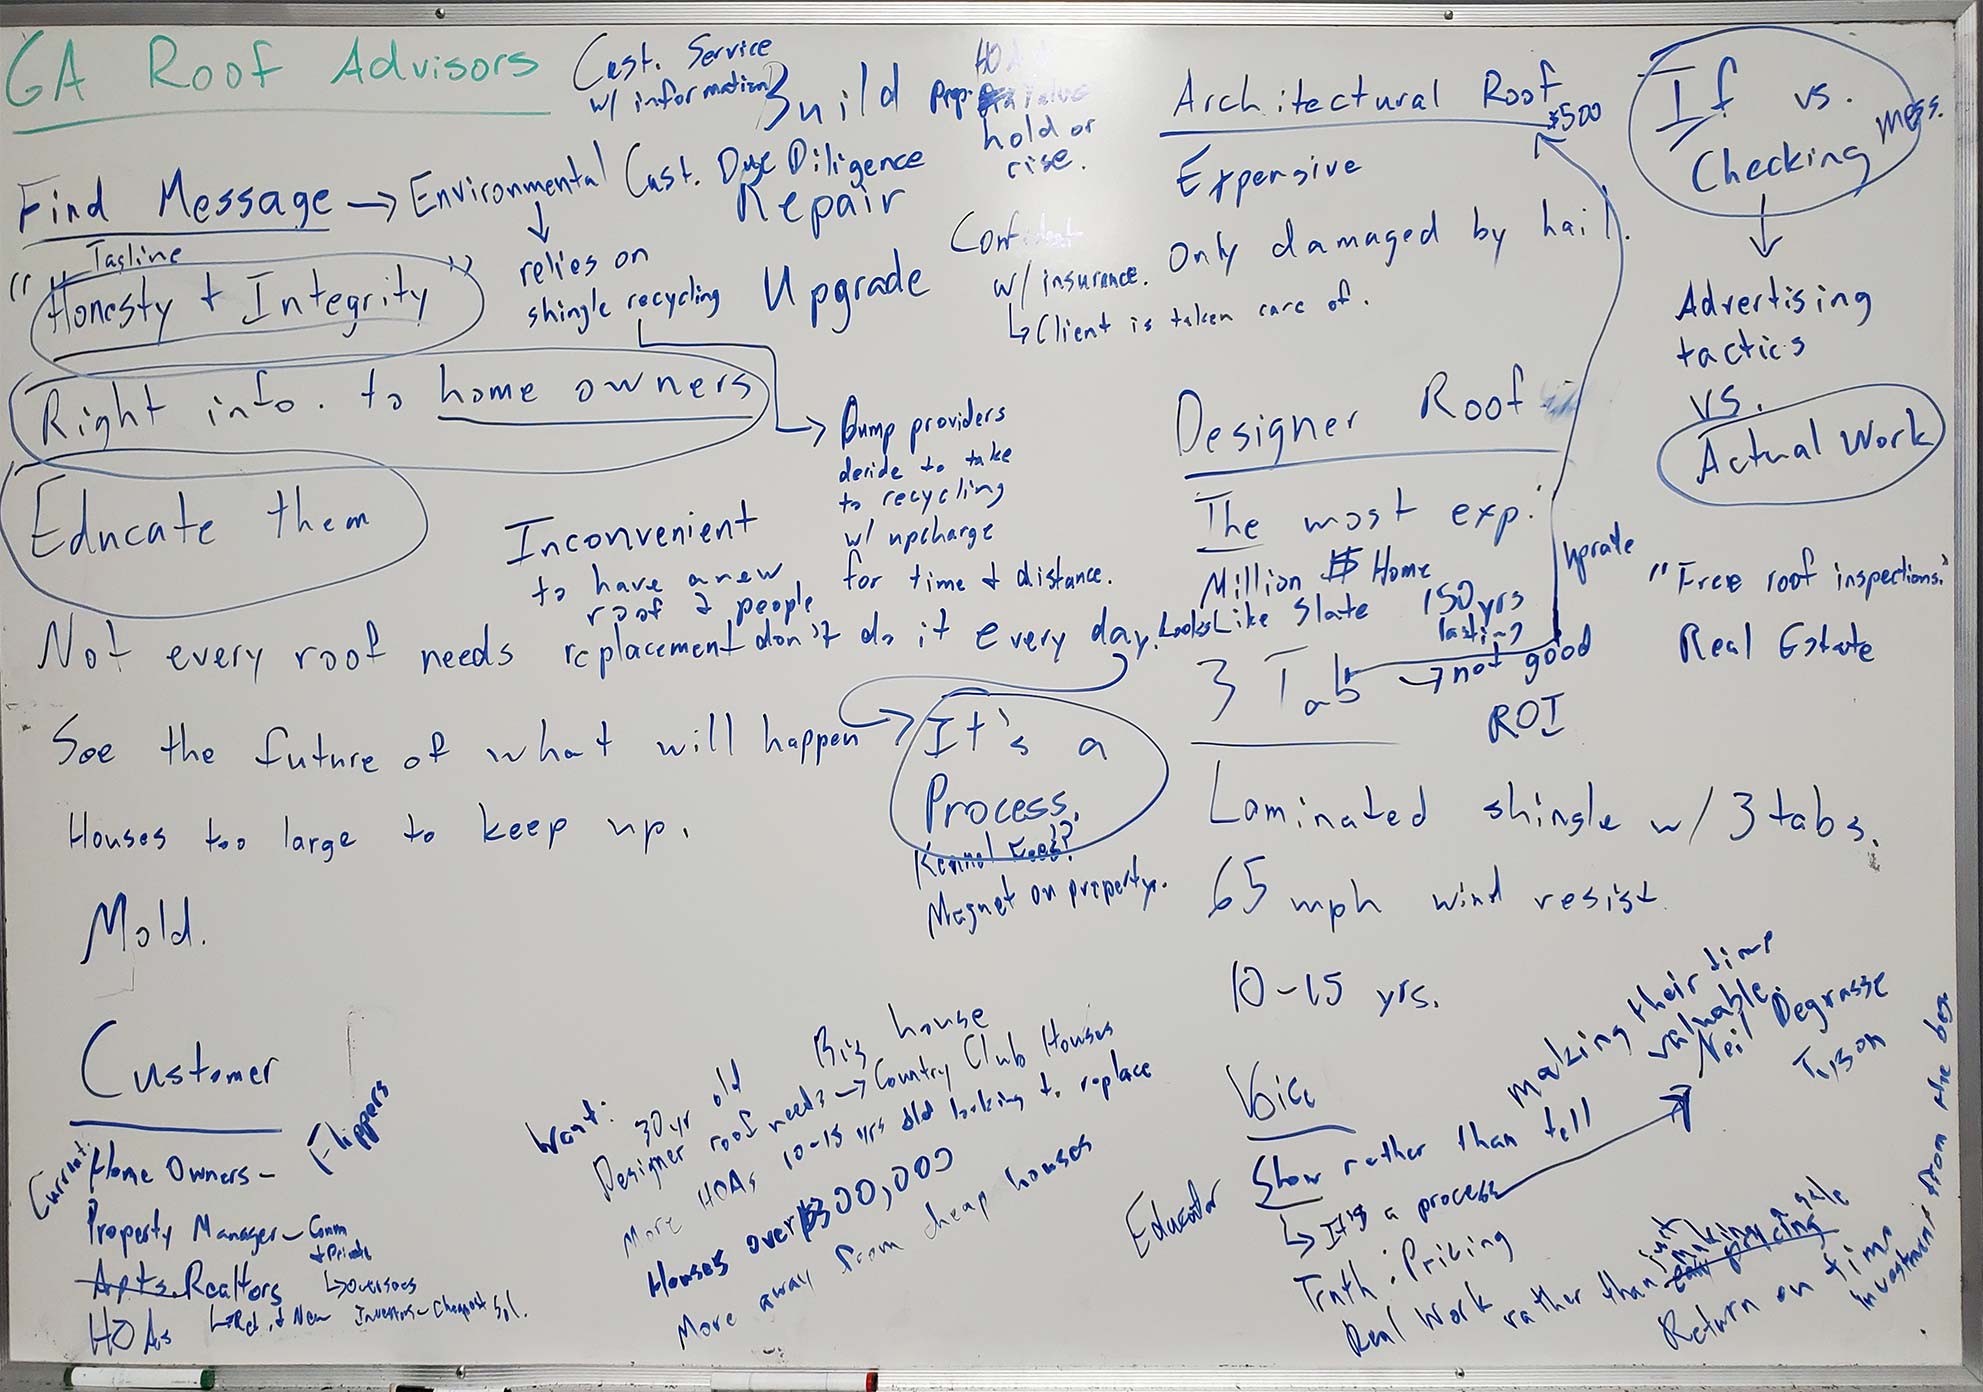 GA Roof Advisors
Cust. Service
w/ information
Build
Prop. Value
hold or
rise.
Find Message → Environmental
Cust. Due Diligence
Repair
relies on
shingle recycling
Upgrade
Tagline
"Honesty + Integrity"
Confident
w/ insurance.
↳ Client is taken care of.
Right info. to home owners
Educate them
Dump providers
decide to take
to recycling
w/ upcharge
for time & distance.
Inconvenient
to have a new
roof & people
don't do it every day.
Not every roof needs replacement
See the future of what will happen
It's a
Process.
Magnet on property.
Houses too large to keep up.
Mold.
Architectural Roof
$500
Expensive
Only damaged by hail.
Designer Roof
The most exp.
Million $ Home
Looks Like Slate
150 yrs
lasting
3 Tab → not good
ROI
Laminated shingle w/ 3 tabs.
65 mph wind resist.
10-15 yrs.
If vs.
Checking
mess.
Advertising
tactics
vs.
Actual Work
"Free roof inspections."
Real Estate
Customer
Current:
Home Owners -
Flippers
Property Manager - Comm
+ Private
↳ oversees
Apts. Realtors
↳ Ret. & New
Investors - Cheapest Sol.
HOAs
Want:
30 yr old
Big house
Designer roof needs → Country Club Houses
More HOAs 10-15 yrs old looking to replace
Houses over $300,000
More away from cheap houses
Voice
Educator
Show rather than tell
making their time
valuable.
Neil Degrasse
Tyson
↳ It's a process
Truth: Pricing
Real Work rather than just making a sale
Return on time
investment from the beg